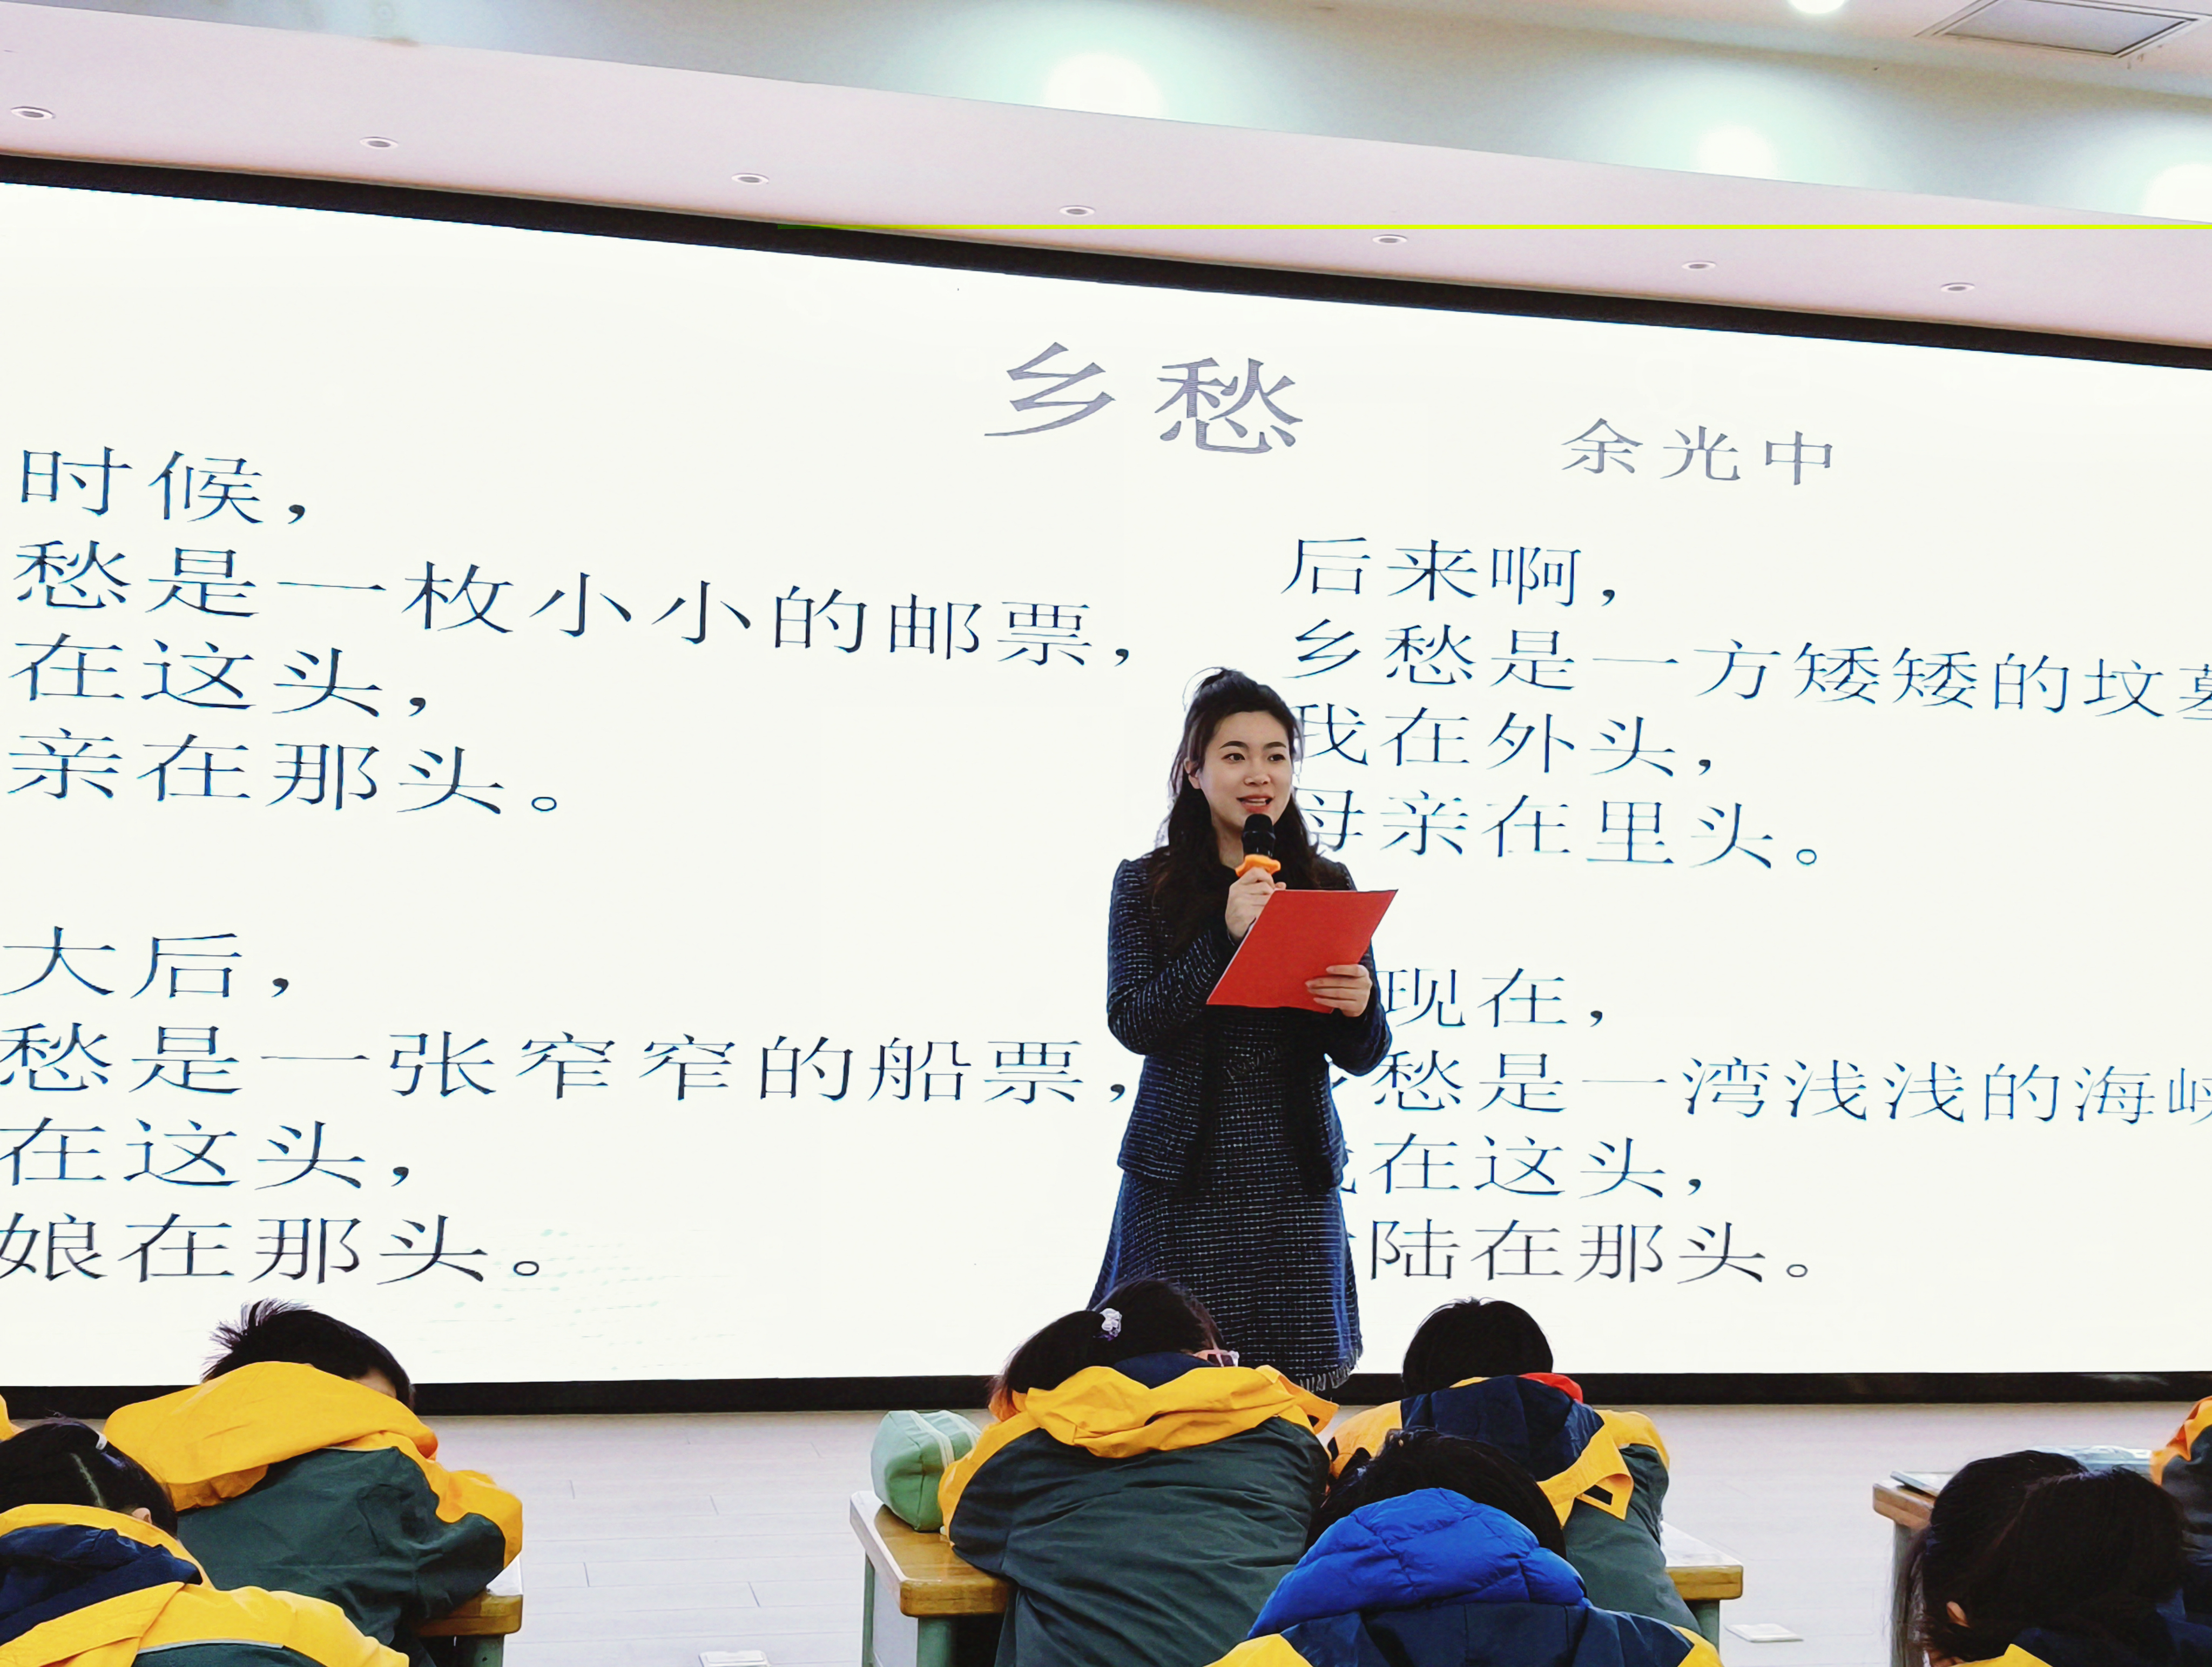 乡愁
余光中
时候，
愁是一枚小小的邮票，
在这头，
亲在那头。
大后，
愁是一张窄窄的船票，
在这头，
娘在那头。
后来啊，
乡愁是一方矮矮的坟墓
我在外头，
母亲在里头。
现在，
愁是一湾浅浅的海峡
在这头，
陆在那头。